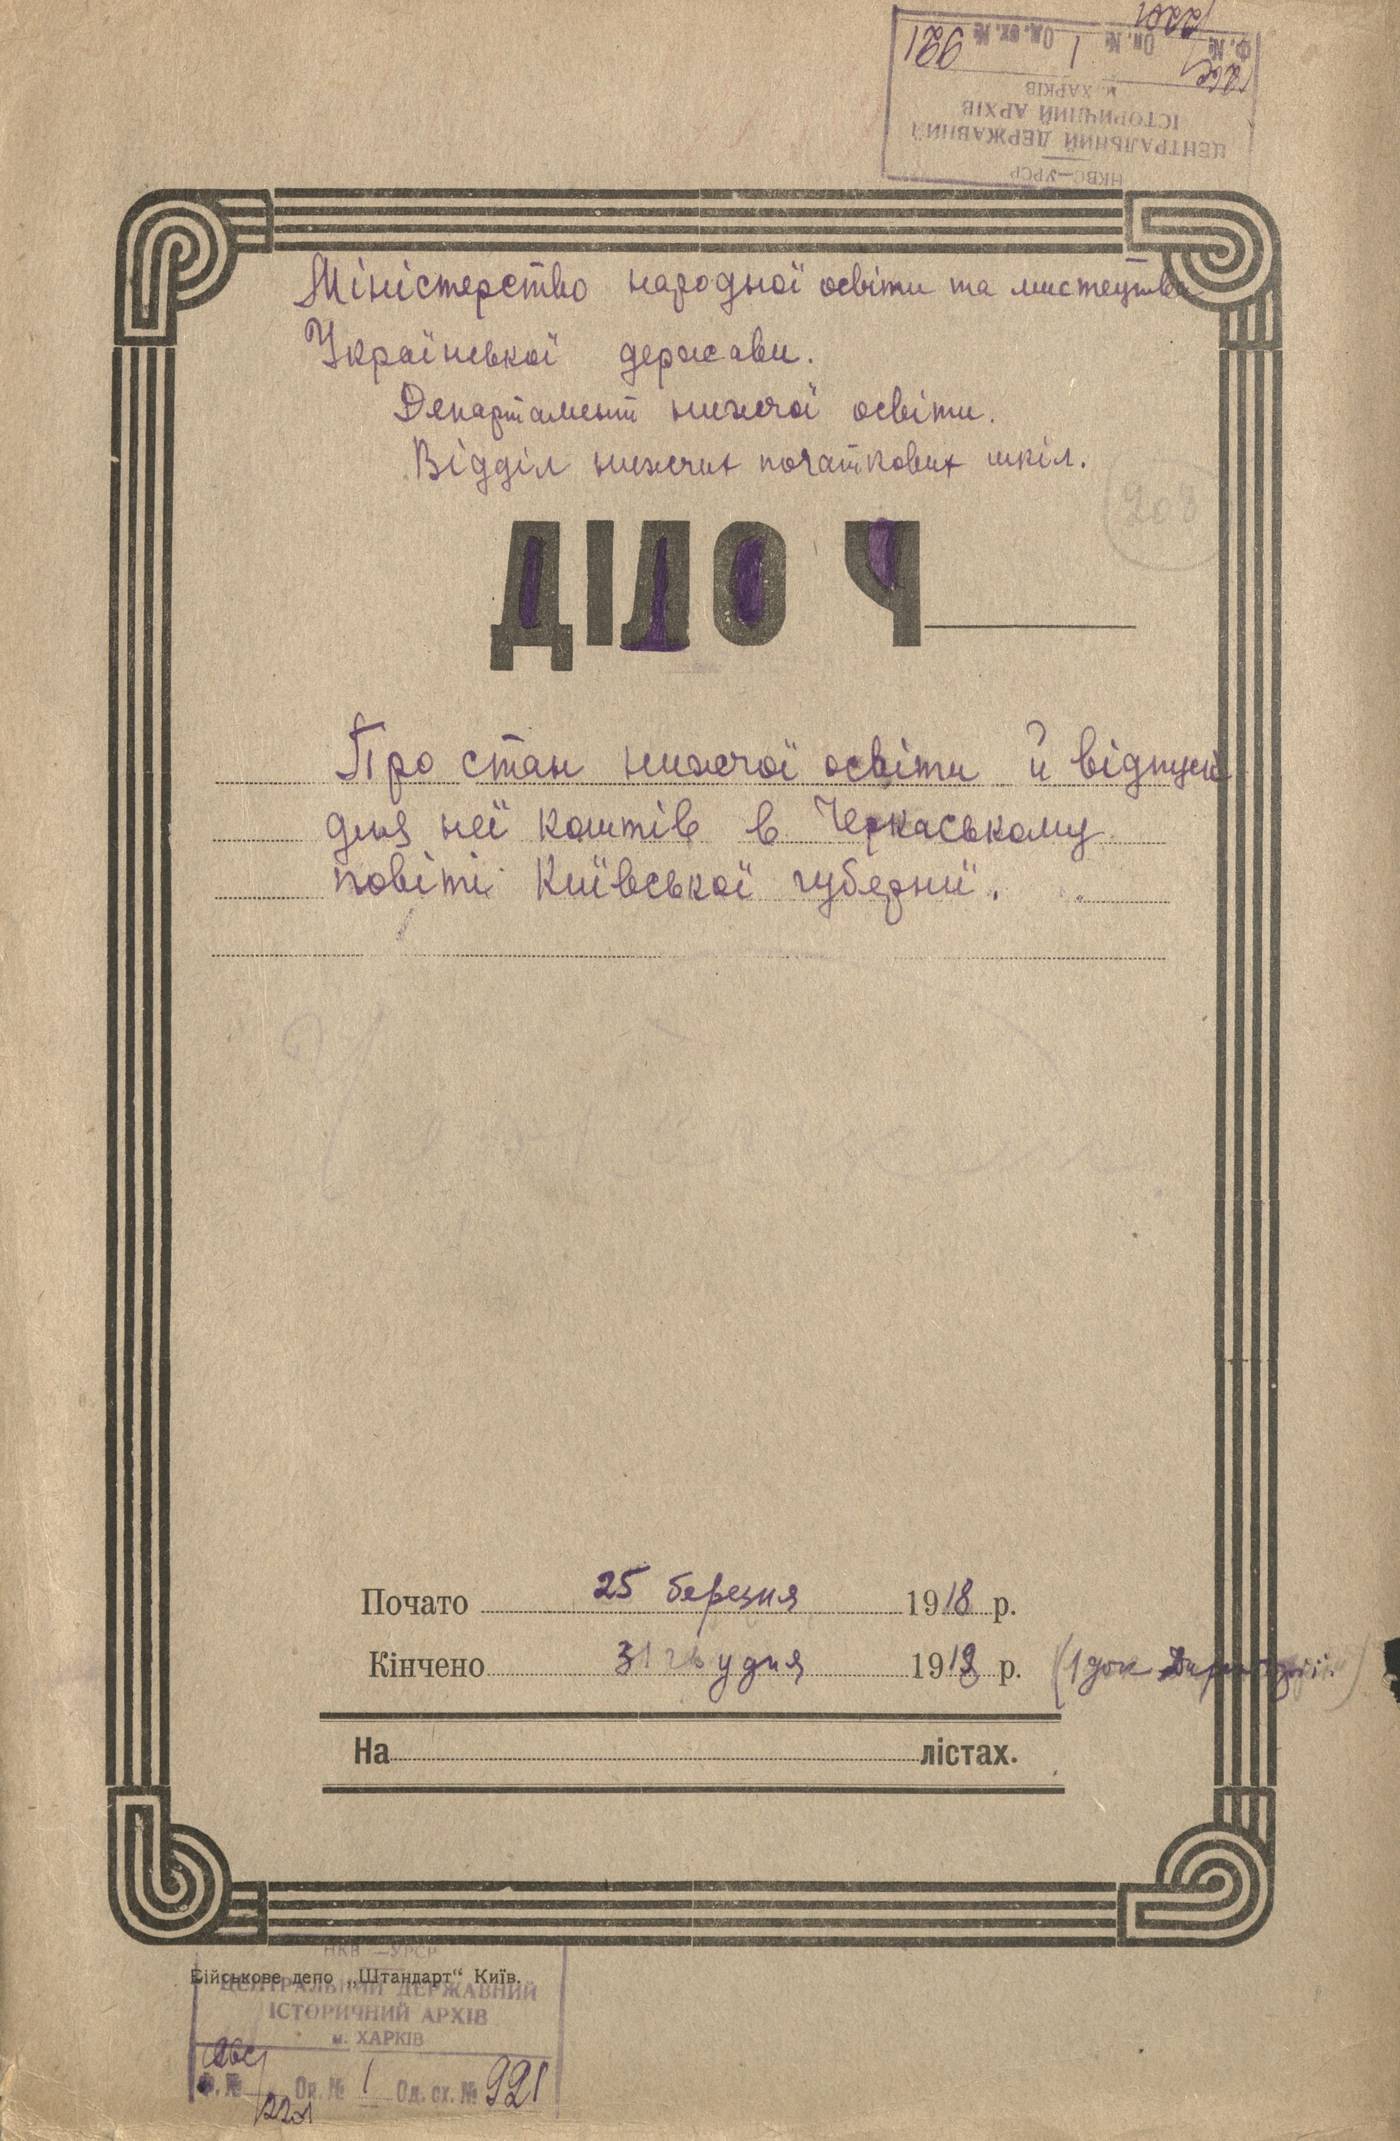 НКВС—УРСР
ЦЕНТРАЛЬНИЙ ДЕРЖАВНИЙ
ІСТОРИЧНИЙ АРХІВ
м. ХАРКІВ
Ф. № Оп. № 1 Од. сх. № 921
2201
Міністерство народної освіти та мистецтва
Української держави.
Департамент нижчої освіти.
Відділ нижчих початкових шкіл.
203
ДІЛО Ч
Про стан нижчої освіти й відпуск
для неї коштів в Черкаському
повіті Київської губернії.
Почато 25 березня 1918 р.
Кінчено 31 грудня 1918 р. (1 док
На лістах.
НКВ —УРСР
Військове депо „Штандарт“ Київ.
ЦЕНТРАЛЬНИЙ ДЕРЖАВНИЙ
ІСТОРИЧНИЙ АРХІВ
м. ХАРКІВ
Ф. № Оп. № 1 Од. сх. № 921
2201